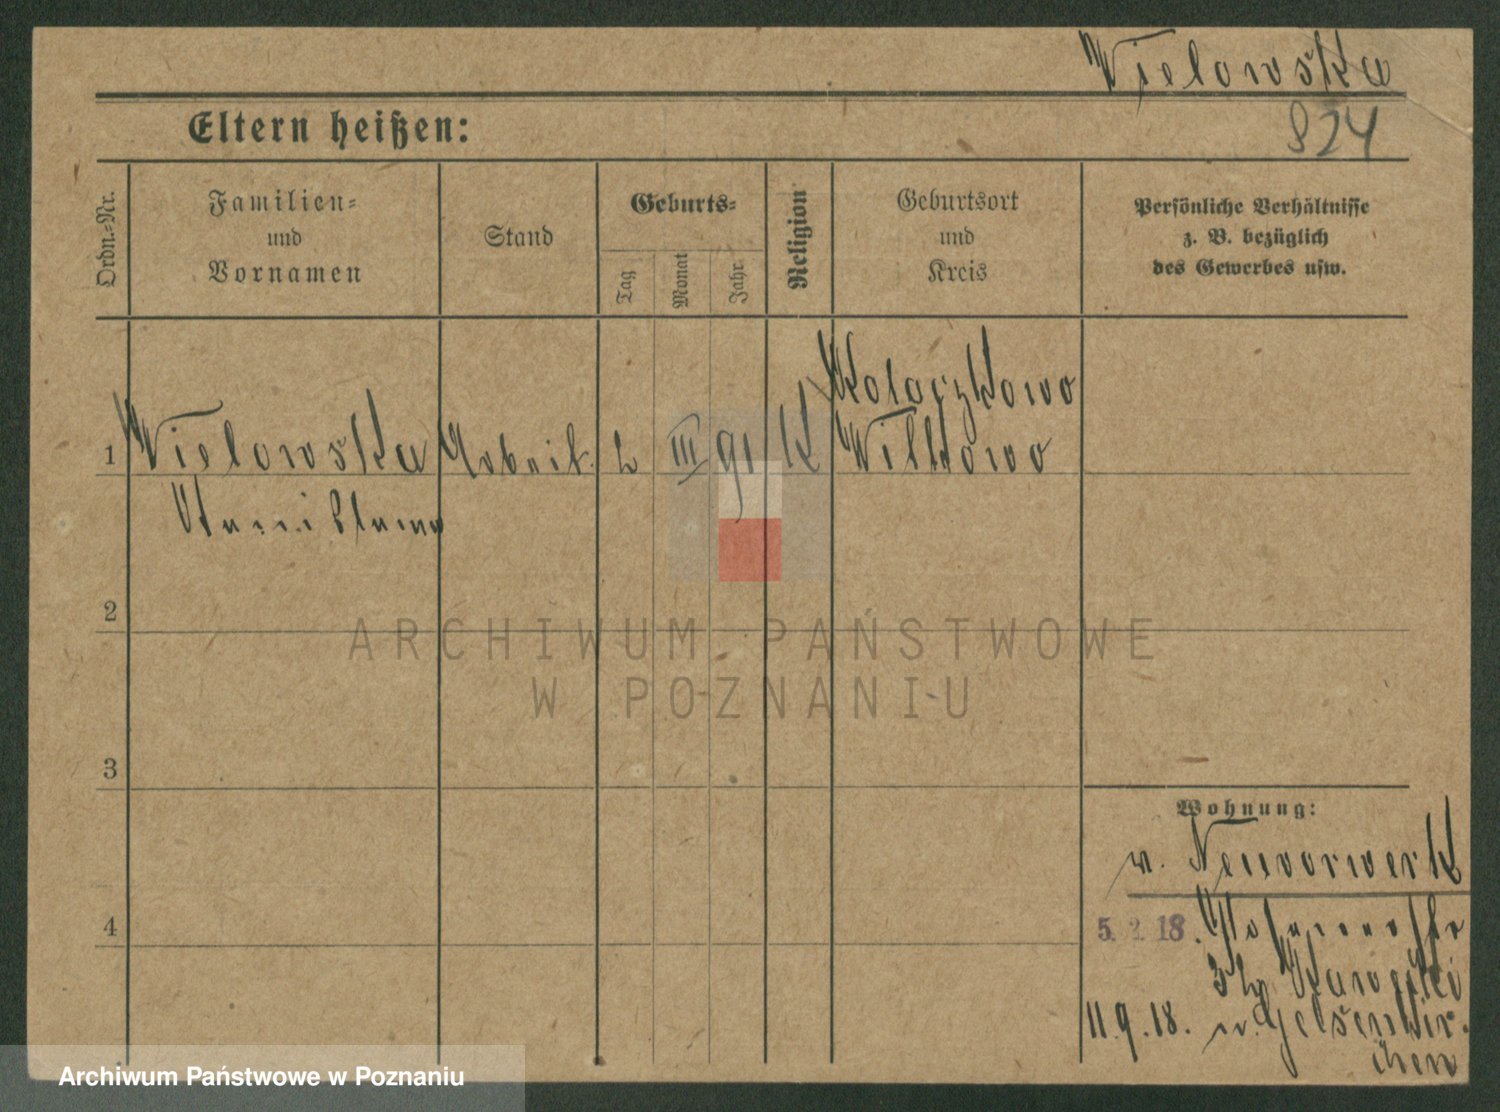 Wielowska
824
Eltern heißen:
Ordn.-Nr.
Familien-
und
Vornamen
Stand
Geburts-
Tag
Monat
Jahr
Religion
Geburtsort
und
Kreis
Persönliche Verhältnisse
z. B. bezüglich
des Gewerbes usw.
1 Wielowska Arbeit. 2 III 91 K Kolaczkowo
Witkowo
Stanislawa
2
3
4
Wohnung:
v. Neuvorwerk
5. 2. 18.
11.9.18. n. Gelsenkir-
chen
ARCHIWUM PAŃSTWOWE
W POZNANIU
Archiwum Państwowe w Poznaniu